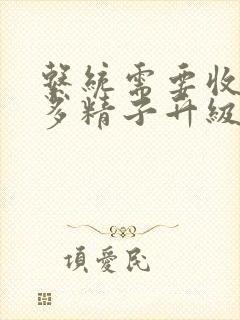 繫統需要收
多精子升級
項愛民